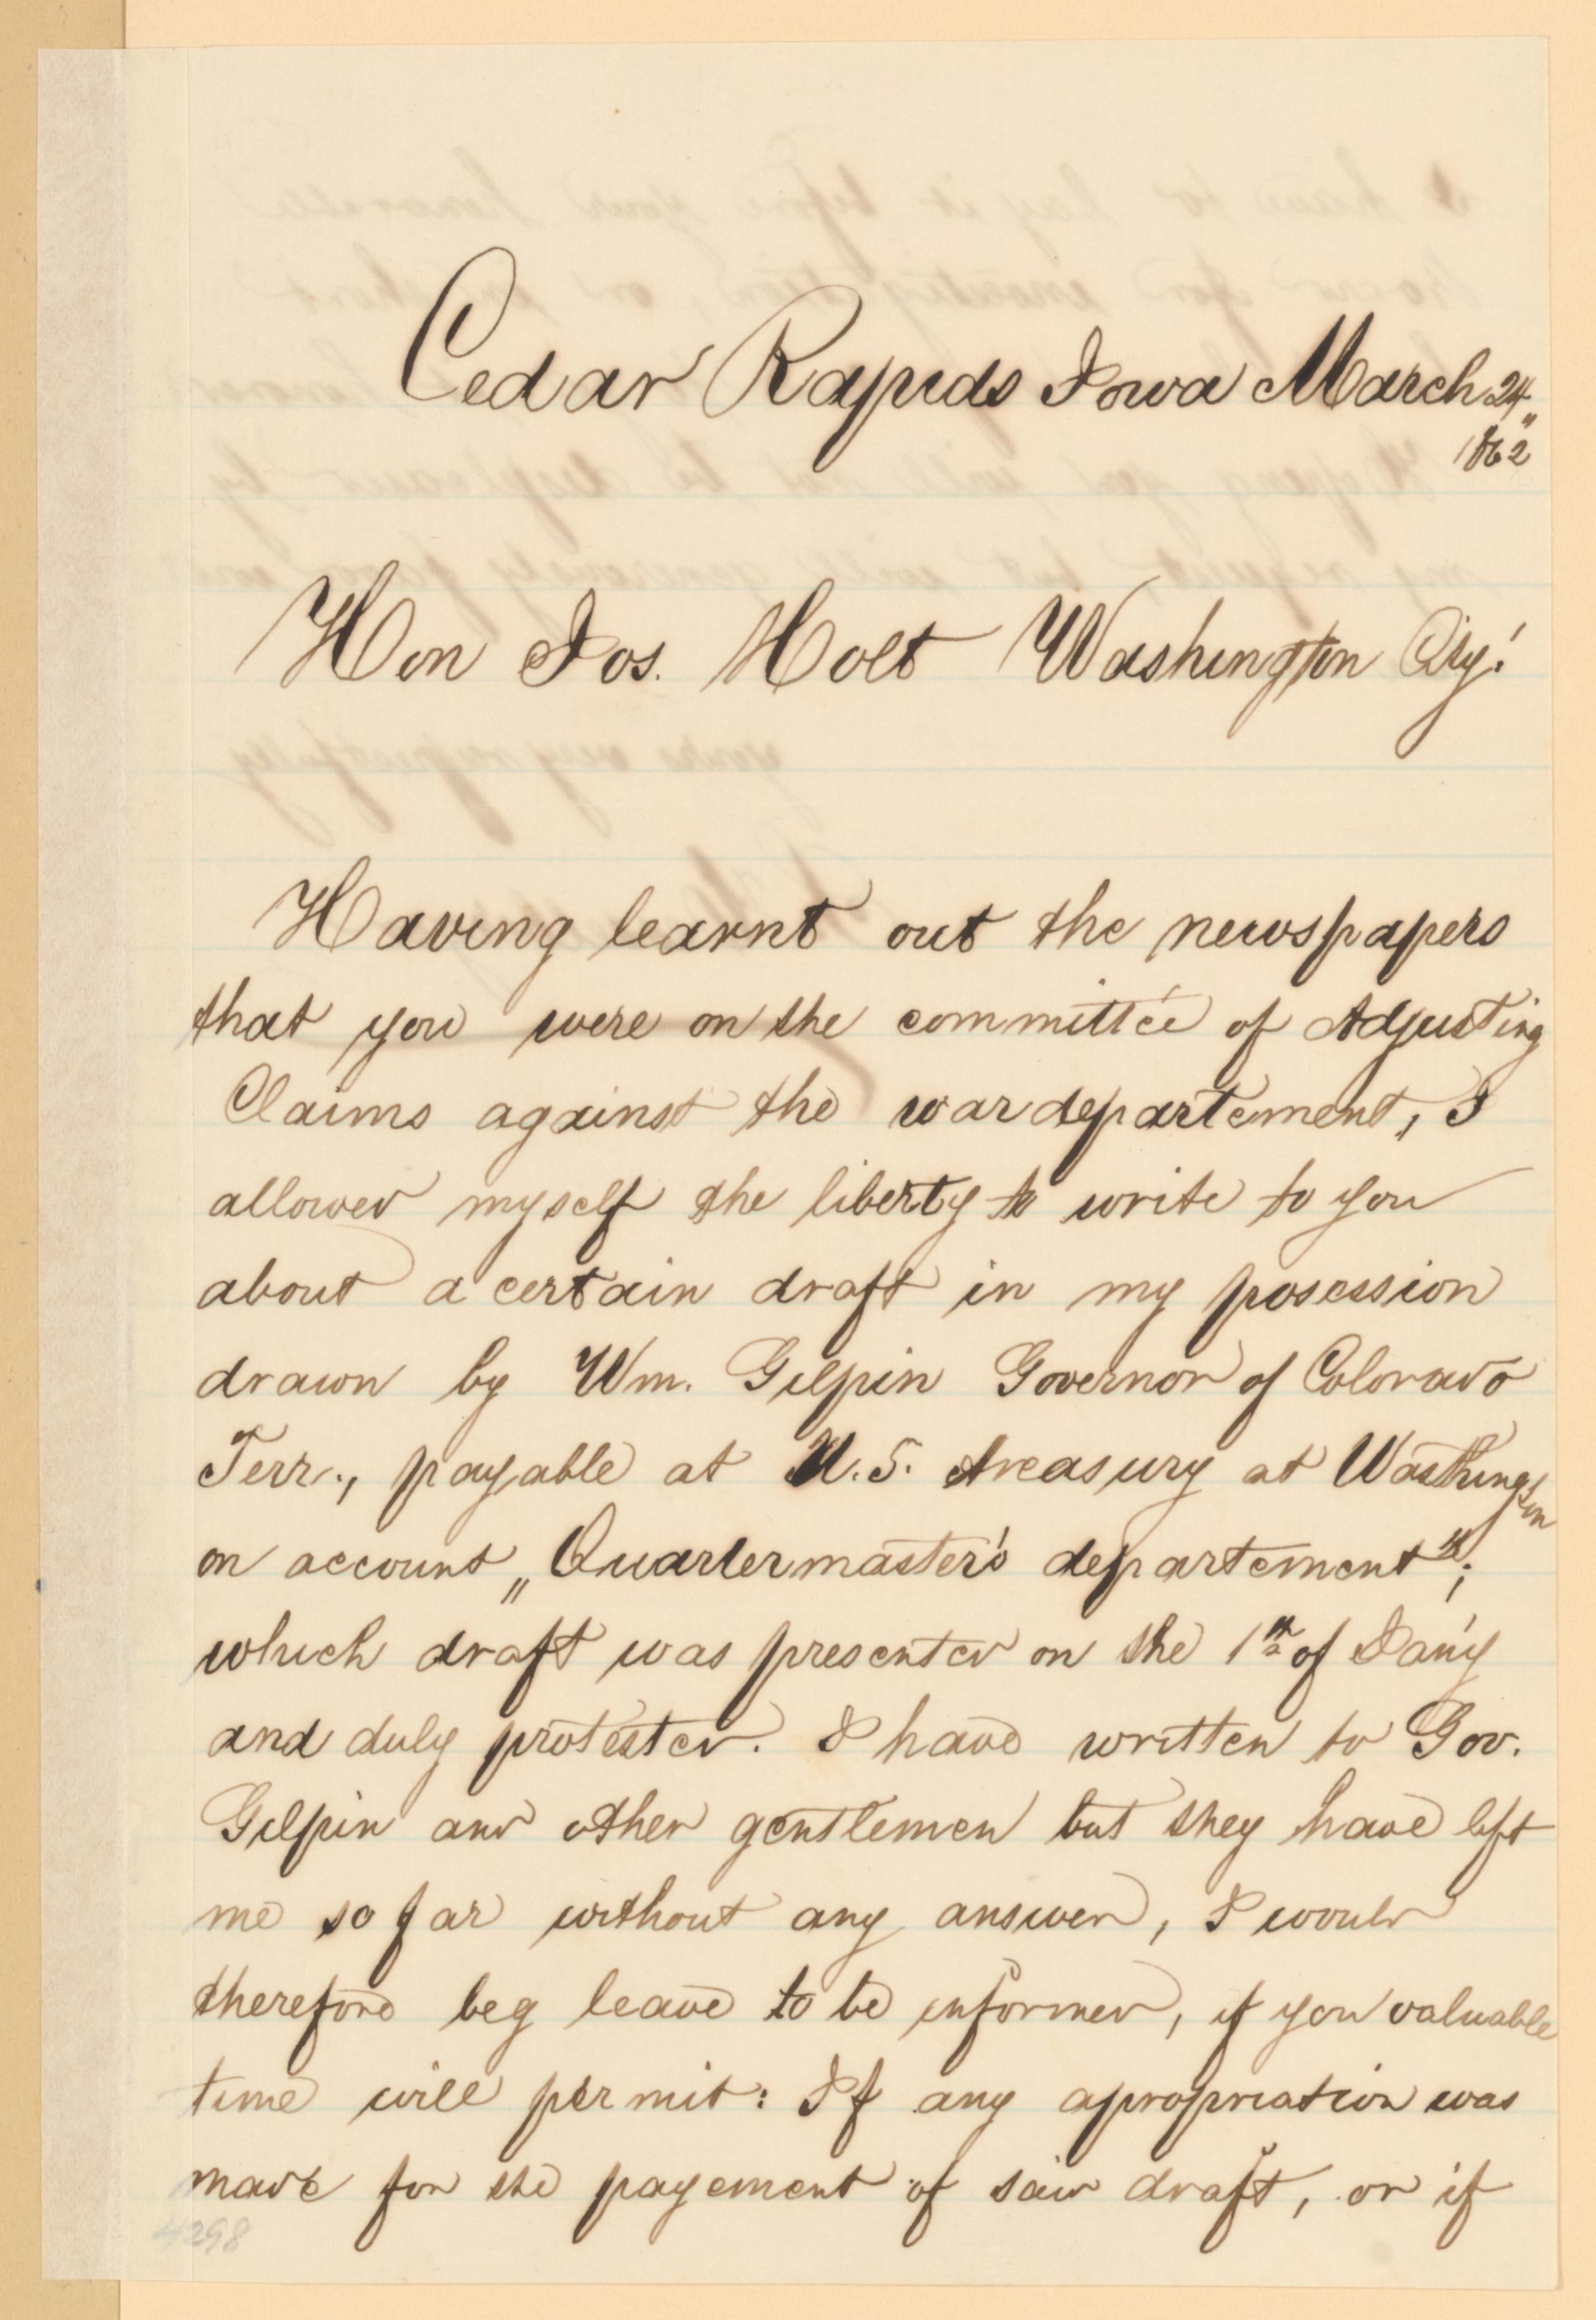 Cedar Rapids Iowa March 24"
1862
Hon Jos. Holt Washington City!
Having learnt out the newspapers
that you were on the committée of Adjusting
Claims against the wardepartement, I
allowed myself the liberty to write to you
about a certain draft in my posession
drawn by Wm. Gilpin Governor of Colorado
Terr., payable at U.S. treasury at Washington
on account „Quartermaster's departement";
which draft was presented on the 1st of Jan'y
and duly protested. I have written to Gov.
Gilpin and other gentlemen but they have left
me so far without any answer, I would
therefore beg leave to be informed, if you valuable
time will permit: If any apropriation was
made for the payement of said draft, or if
4298